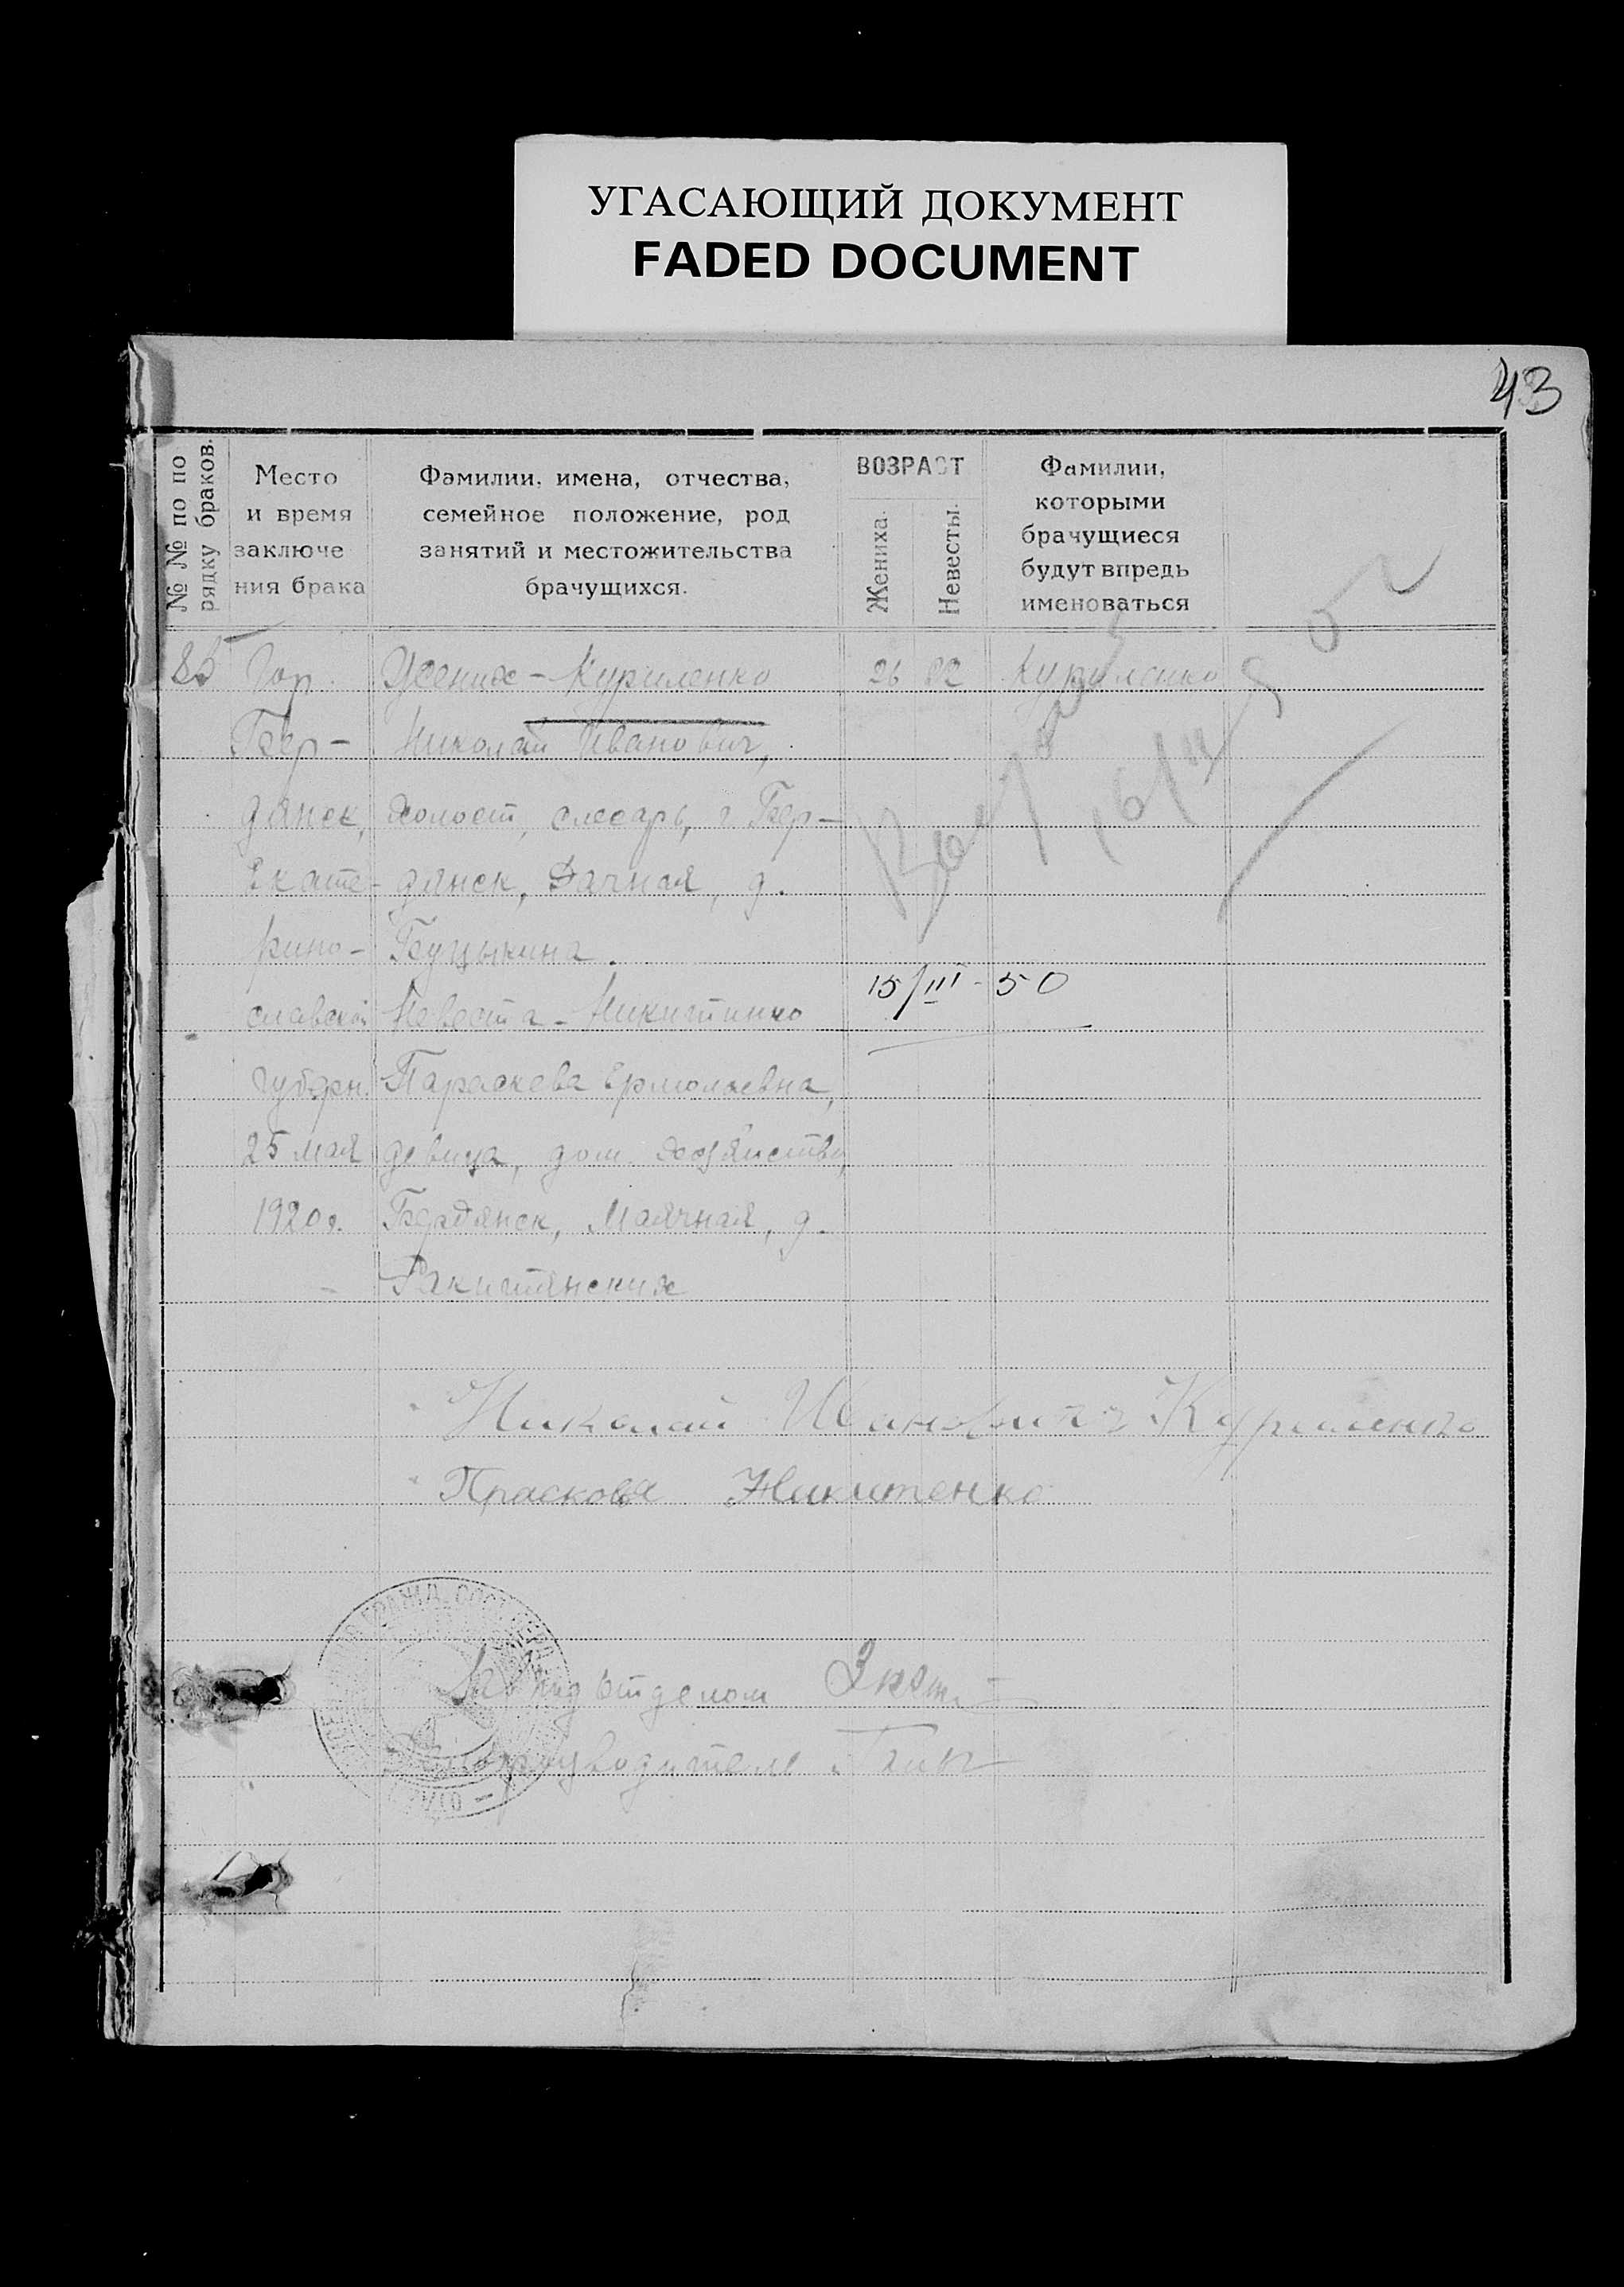 УГАСАЮЩИЙ ДОКУМЕНТ
FADED DOCUMENT
43
№ № по по
рядку браков.
Место
и время
заключе
ния брака
Фамилии, имена, отчества,
семейное положение, род
занятий и местожительства
брачущихся.
ВОЗРАСТ
Жениха.
Невесты.
Фамилии,
которыми
брачущиеся
будут впредь
именоваться
85
Гор.
Бер-
дянск,
Екате-
рино-
славской
губерн.
25 мая
1920 г.
Жених - Куриленко
Николай Иванович,
холост, слесарь, г. Бер-
дянск, Дачная, д.
Буцыкина.
Невеста - Никитинко
Параскева Ермолаевна,
девица, дом. хозяйство,
Бердянск, Маячная, д.
Ракитянских
26
22
Куриленко
15/III - 50
Николай Иванович Куриленко
Прасковя Никитенко
Зав. подотделом
Делопроизводитель